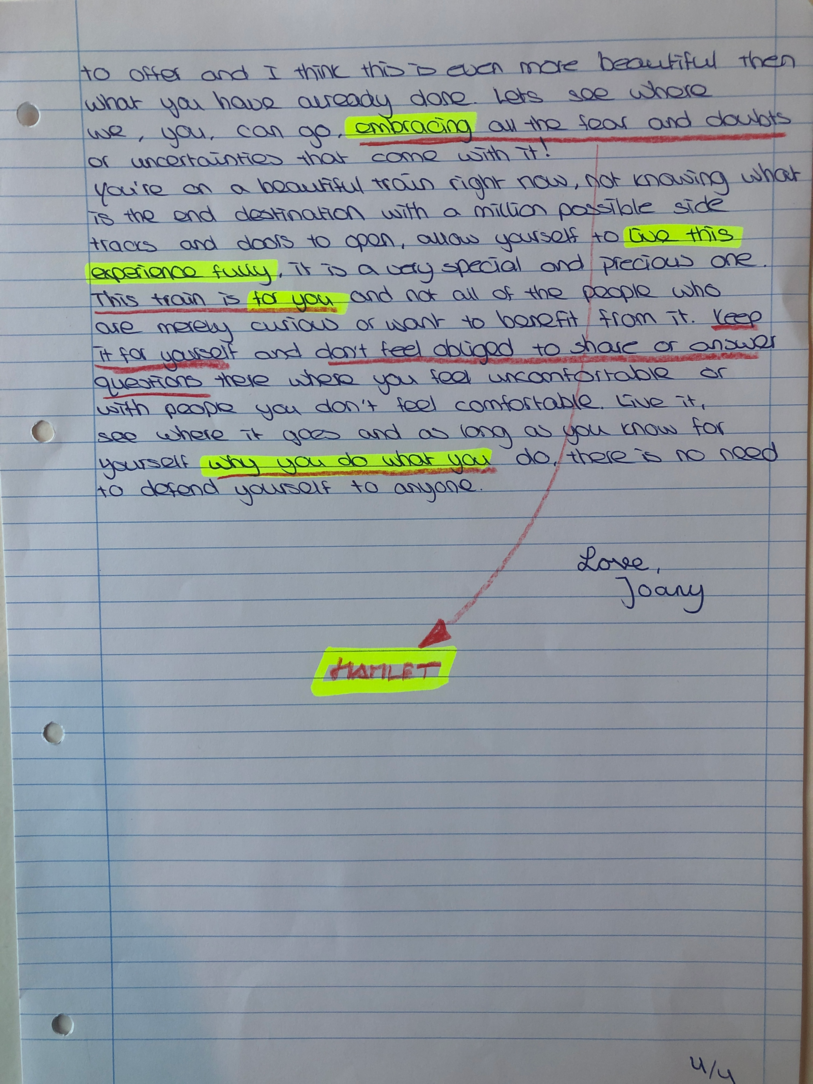 to offer and I think this is even more beautiful then
what you have already done. Lets see where
we, you, can go, embracing all the fear and doubts
or uncertainties that come with it!
You're on a beautiful train right now, not knowing what
is the end destination with a million possible side
tracks and doors to open, allow yourself to live this
experience fully, it is a very special and precious one.
This train is for you and not all of the people who
are merely curious or want to benefit from it. Keep
it for yourself and don't feel obliged to share or answer
questions there where you feel uncomfortable or
with people you don't feel comfortable. Live it,
see where it goes and as long as you know for
yourself why you do what you do, there is no need
to defend yourself to anyone.
Love,
Joany
HAMLET
4/4